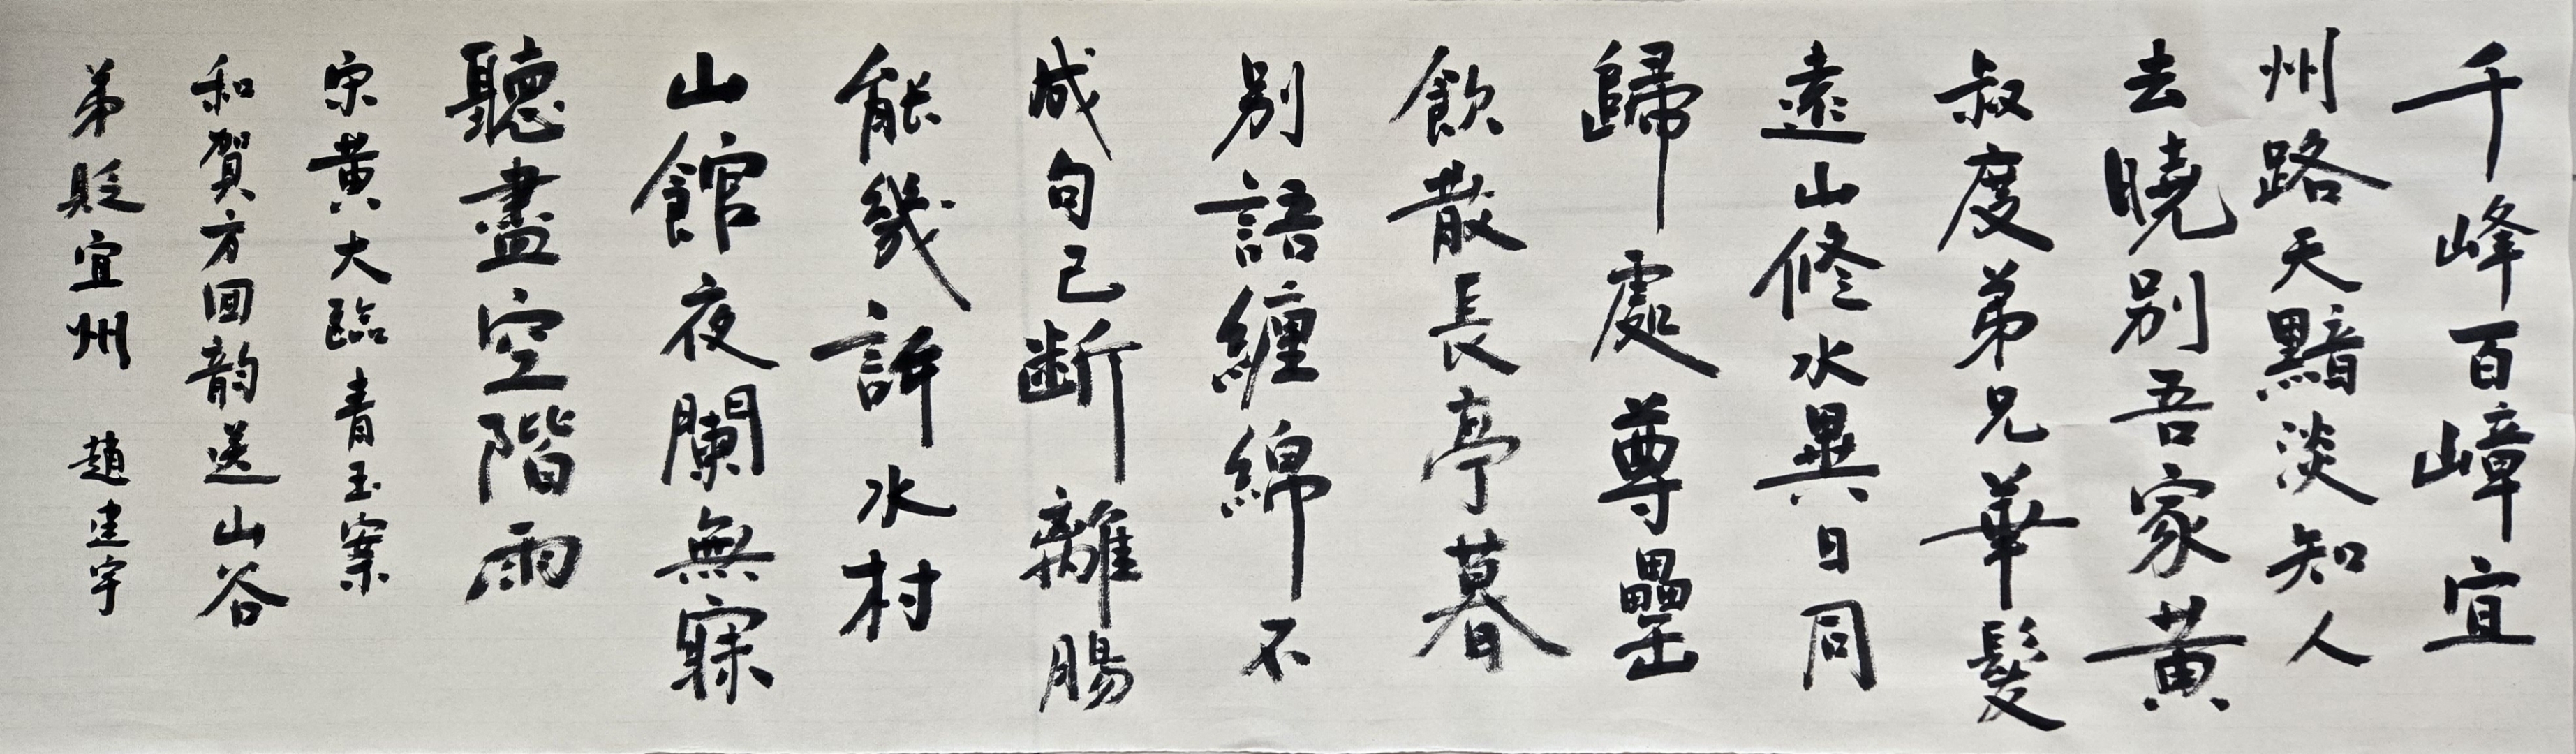 千峰百嶂宜
州路天黯淡知人
去曉别吾家黄
叔度弟兄華髮
遠山修水異日同
歸處尊罍
飲散長亭暮
别語纏綿不
成句已断離腸
能幾許水村
山館夜闌無寐
聽盡空階雨
宋黄大臨青玉案
和賀方回韵送山谷
弟貶宜州 趙建宇